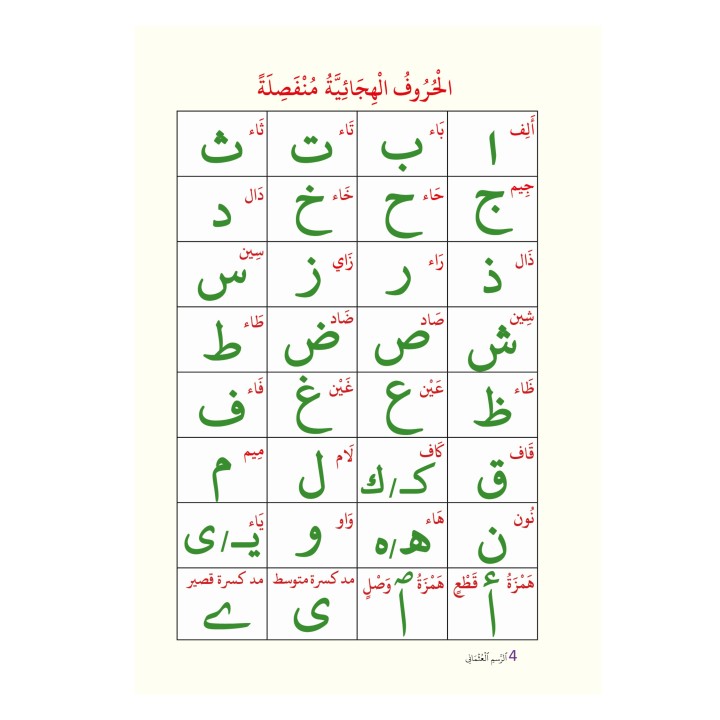 الْحُرُوفُ الْهِجَائِيَّةُ مُنْفَصِلَةً
أَلِف بَاء تَاء ثَاء
ا ب ت ث
جِيم حَاء خَاء دَال
ج ح خ د
ذَال رَاء زَاي سِين
ذ ر ز س
شِين صَاد ضَاد طَاء
ش ص ض ط
ظَاء عَيْن غَيْن فَاء
ظ ع غ ف
قَاف كَاف لَام مِيم
ق كـ/ك ل م
نُون هَاء وَاو يَاء
ن هـ/ه و يـ/ى
هَمْزَةُ قَطْعٍ هَمْزَةُ وَصْلٍ مد كسرة متوسط مد كسرة قصير
أ ٱ ى ے
4 الرَّسم الْعُثْمَانِي